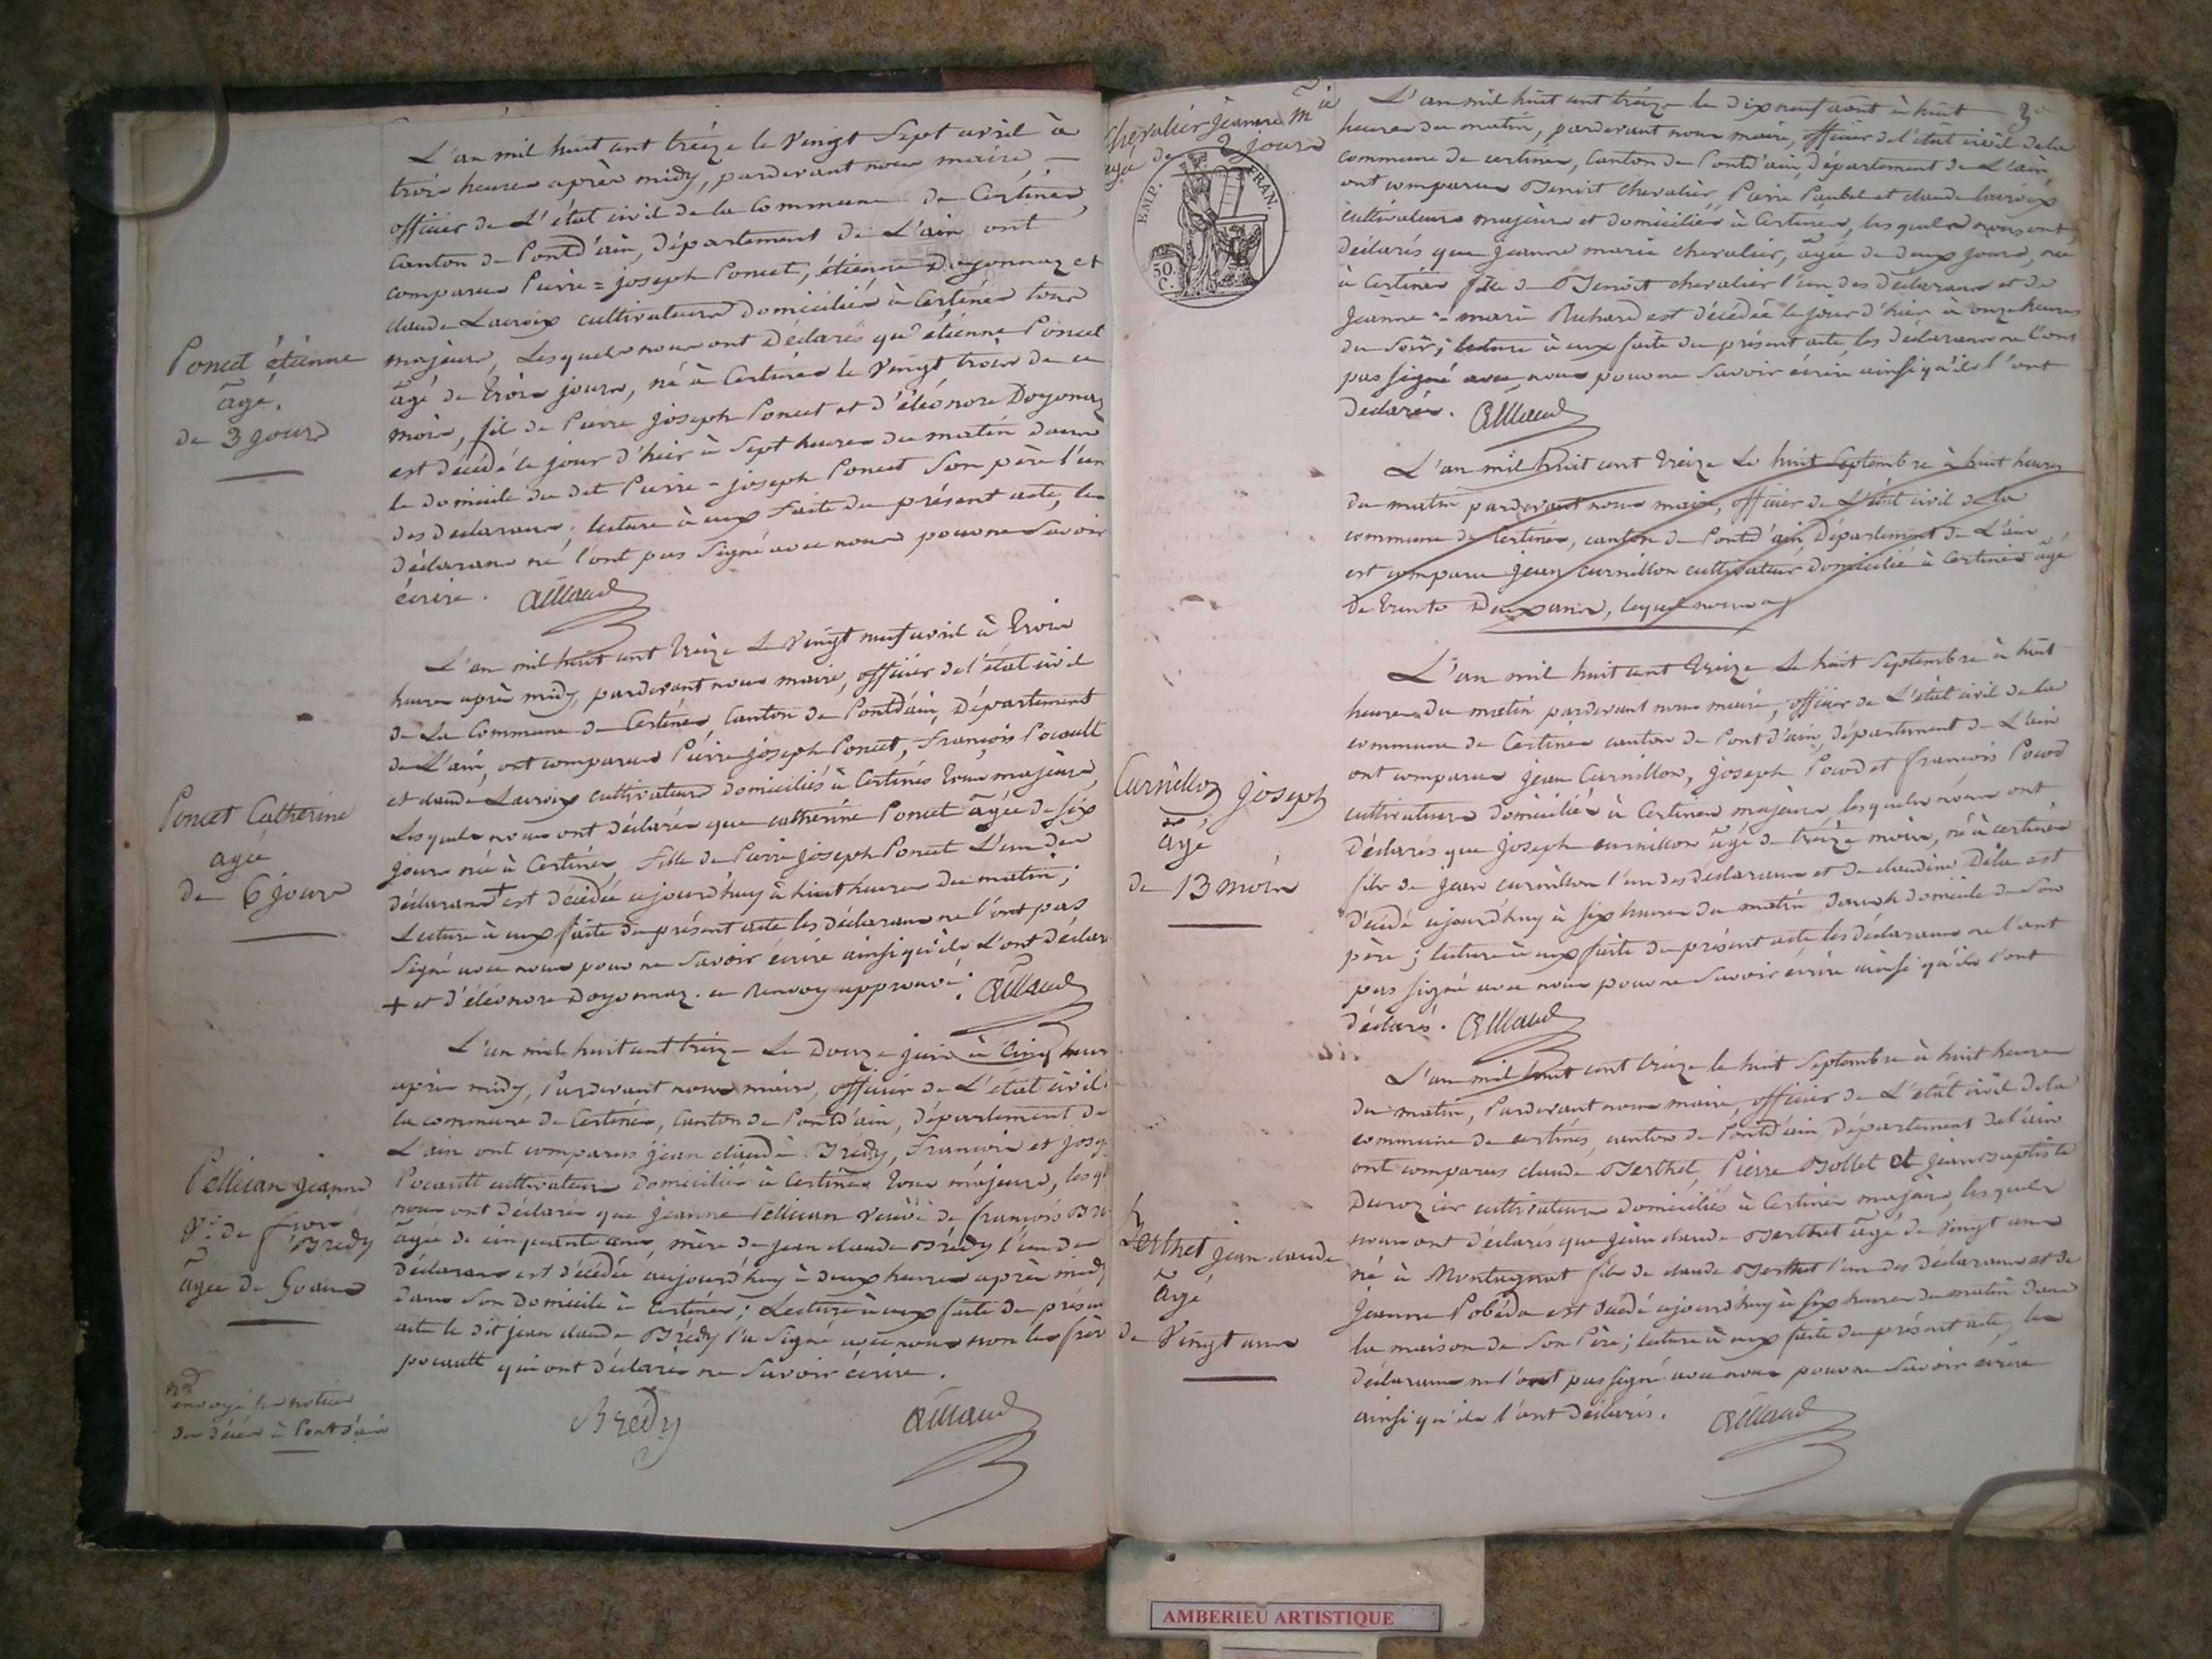 Poncet étienne
âgé
de 3 jours
L'an mil huit cent treize le vingt sept avril à
trois heures après midy, pardevant nous maire,
officier de L'état civil de la Commune de Certines,
Canton de Pontd'ain, département de L'ain, ont
comparu Pierre=joseph Poncet, étienne Doyonnaz et
claude Lacroix cultivateurs domiciliés à Certines tous
majeurs, Lesquels nous ont déclarés qu'étienne Poncet
âgé de trois jours, né à Certines le vingt trois de ce
mois, fils de Pierre joseph Poncet et d'éléonore Doyonnaz
est décédé le jour d'hier à sept heures du matin dans
le domicile du dit Pierre=joseph Poncet son père l'un
des declarans, lecture à eux faite du présent acte, les
déclarans ne l'ont pas signé avec nous pour ne savoir
écrire.
Poncet Catherine
agée
de 6 jours
L'an mil huit cent treize le vingt neuf avril à trois
heures après midy, pardevant nous maire, officier de l'état civil
de La Commune de Certines Canton de Pontd'ain, Département
de L'ain, ont comparus Pierre joseph Poncet, françois Pocault
et claude Lacroix cultivateurs domiciliés à Certines tous majeurs,
Lesquels nous ont déclarés que catherine Poncet âgée de six
jours née à Certines, fille de Pierre joseph Poncet L'un des
déclarans + est décédée ajourd'huy à huit heures du matin;
Lecture à eux faite du présent acte les déclarans ne l'ont pas
signé avec nous pour ne savoir écrire ainsi qu'ils L'ont déclar
+ et d'éléonore Doyonnaz. ce Renvoy approuvé.
Pellican jeanne
Ve. de frois
Brédy
âgée de 50 ans
L'an mil huit cent treize Le Douze juin à cinq heur
après midy, Pardevant nous maire, officier de L'état civil
la commune de Certines, Canton de Pontd'ain, département de
L'ain ont comparus jean claude Brédy, François et josep
Pocault cultivateurs domiciliés à Certines tous majeurs, lesq
nous ont déclarés que jeanne Pellican veuve de françois Bré
âgée de cinquante ans, mère de jean claude Brédy l'un des
déclarans est décédée aujourd'huy à deux heures après midy
dans son domicile à Certines; Lecture à eux faite du présen
acte le dit jean claude Brédy l'a signé avec nous non les frèr
pocault qui ont déclarés ne savoir écrire.
envoyé la notice
du décès à Pontd'ain
Brédy
Chevalier jeanne Mie
agée de 2 jours
EMP. FRAN.
50
C.
L'an mil huit cent treize le dix neuf août à huit
heures du matin, pardevant nous maire, officier de l'état civil de la
commune de certines, Canton de Pontd'ain, département de L'ain,
ont comparus Benoit chevalier, Pierre et claude lacroix
cultivateurs majeurs et domiciliés à Certines, lesquels nous ont
déclarés que jeanne marie chevalier, âgée de deux jours, née
à Certines fille de Benoit chevalier l'un des déclarans et de
jeanne=marie Richard est décédée le jour d'hier à onze heures
du soir; lecture à eux faite du présent acte, les déclarans ne l'ont
pas signé avec nous pour ne savoir écrire ainsi qu'ils l'ont
declarés.
L'an mil huit cent treize Le huit Septembre à huit heures
du matin pardevant nous maire, officier de L'état civil de la
commune de Certines, canton de Pontd'ain, Département de L'ain
est comparu jean curnillon cultivateur domicilié à Certines âgé
de trente Deux ans, lequel nous a
Curnillon joseph
âgé
de 13 mois
L'an mil huit cent treize Le huit Septembre à huit
heures du matin pardevant nous maire, officier de L'état civil de la
commune de Certines canton de Pont d'ain, département de L'ain
ont comparus jean Curnillon, joseph Pocod et françois Pocod
cultivateurs domiciliés à Certines majeurs lesquels nous ont
déclarés que joseph curnillon âgé de treize mois, né à certines
fils de jean curnillon l'un des déclarans et de claudine est
décédé ajourd'huy à six heures du matin dans le domicile de son
père; lecture à eux faite du présent acte les déclarans ne l'ont
pas signé avec nous pour ne savoir écrire ainsi qu'ils l'ont
déclarés.
Berthet jean claude
âgé
de vingt ans
L'an mil huit cent treize le huit Septembre à huit heures
du matin, Pardevant nous maire, officier de L'état civil de la
commune de certines, canton de Pontd'ain, Département de l'ain
ont comparus claude Berthet, Pierre Bollet et jean baptiste
Durozier cultivateurs domiciliés à Certines majeurs, lesquels
nous ont déclarés que jean claude Berthet âgé de vingt ans
né à Montagnat fils de claude Berthet l'un des déclarans et de
jeanne Pobéda est décédé ajourd'huy à six heures du matin dans
la maison de son Père; lecture à eux faite du présent acte, les
déclarans ne l'ont pas signé avec nous pour ne savoir écrire
ainsi qu'ils l'ont déclarés.
AMBERIEU ARTISTIQUE